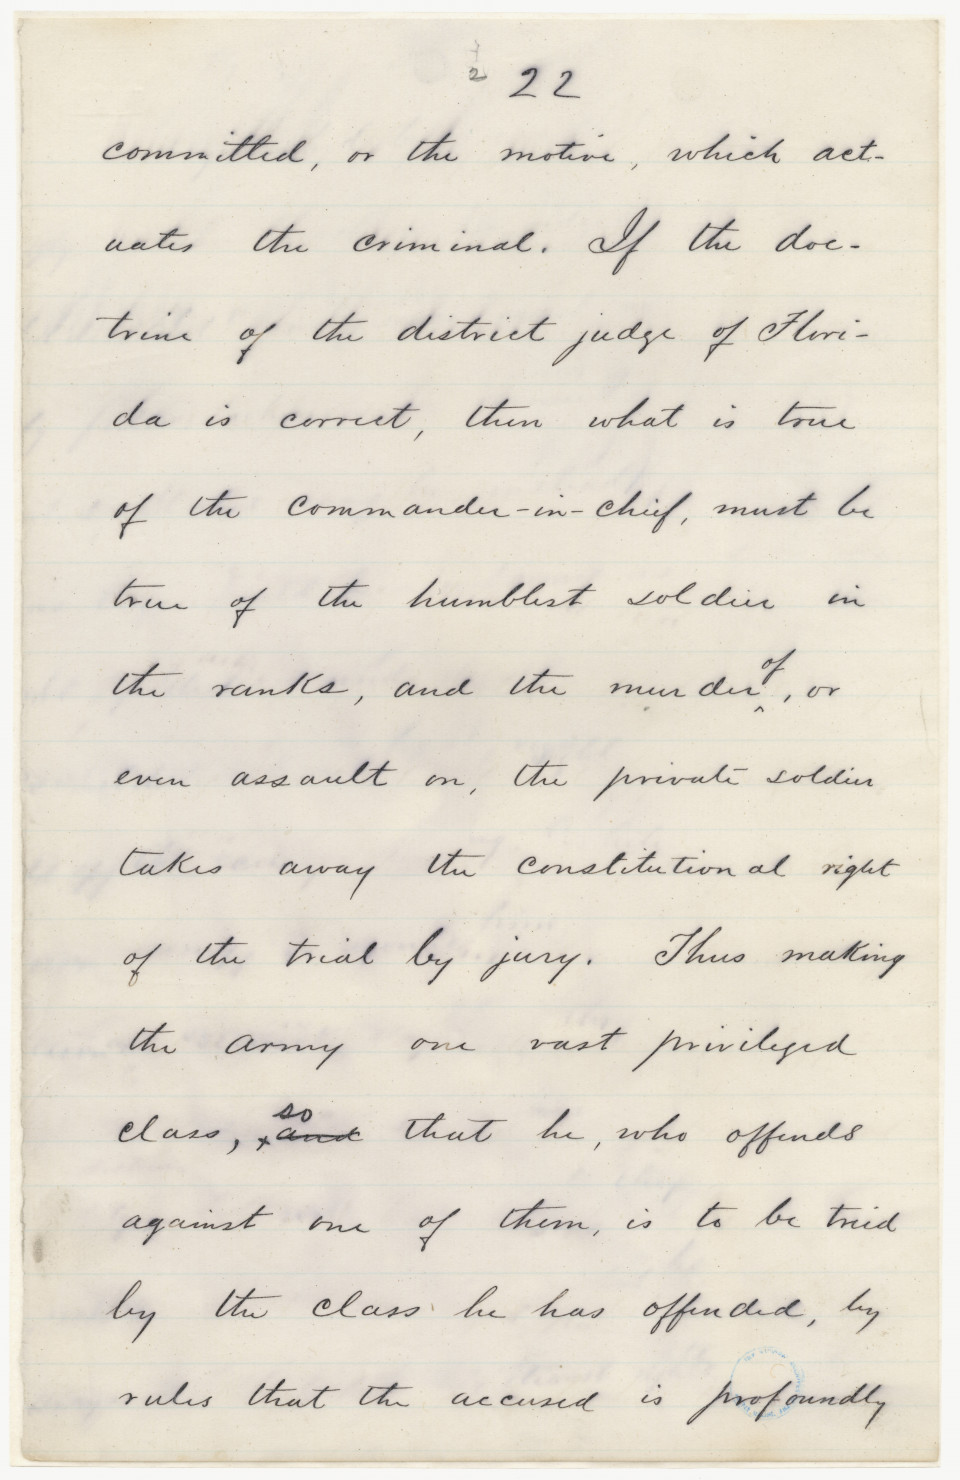 2 22
committed, or the motive, which act-
uates the criminal. If the doc-
trine of the district judge of Flori-
da is correct, then what is true
of the commander-in-chief, must be
true of the humblest soldier in
the ranks, and the murder of, or
even assault on, the private soldier
takes away the constitutional right
of the trial by jury. Thus making
the army one vast privileged
class, and so that he, who offends
against one of them, is to be tried
by the class he has offended, by
rules that the accused is profoundly